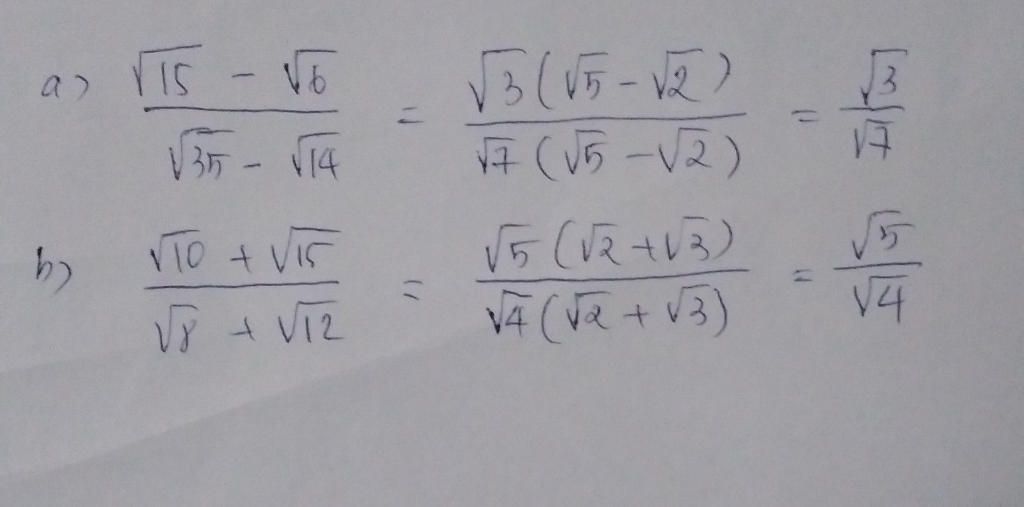 a) (√15 - √6)/(√35 - √14) = (√3(√5 - √2))/(√7(√5 - √2)) = √3/√7
b) (√10 + √15)/(√8 + √12) = (√5(√2 + √3))/(√4(√2 + √3)) = √5/√4